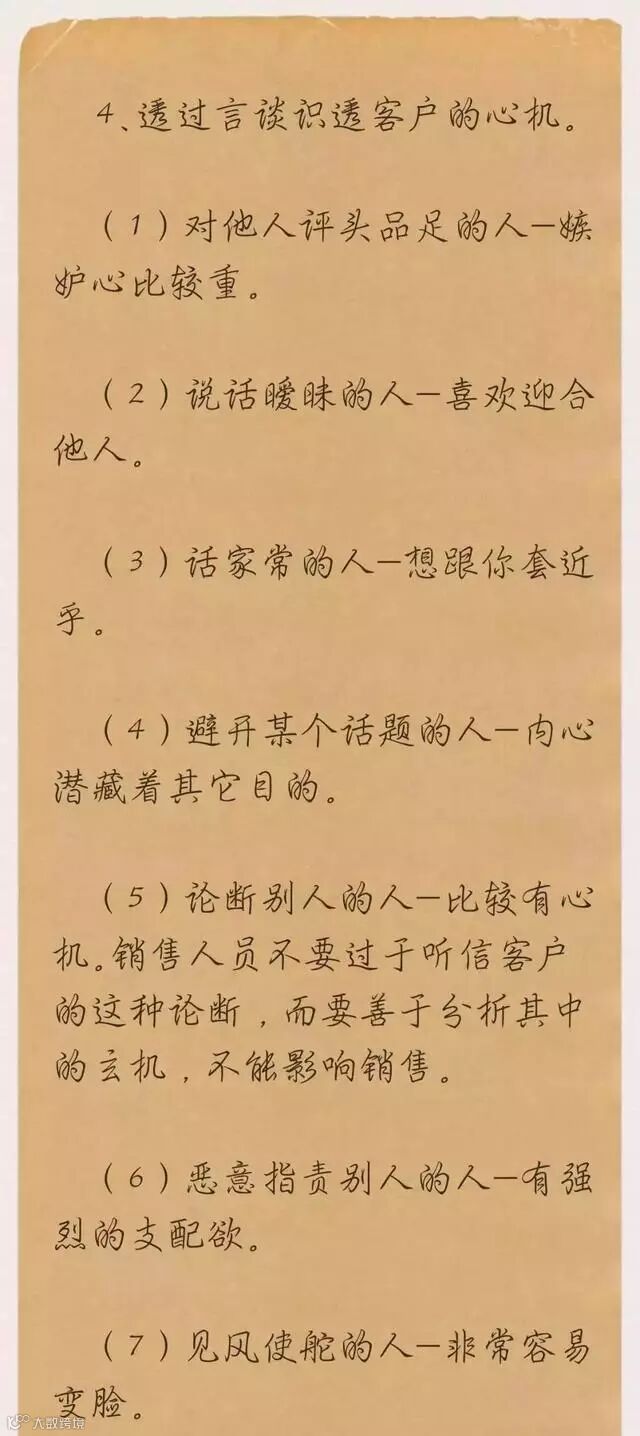 4、透过言谈识透客户的心机。
（1）对他人评头品足的人—嫉
妒心比较重。
（2）说话暧昧的人—喜欢迎合
他人。
（3）话家常的人—想跟你套近
乎。
（4）避开某个话题的人—内心
潜藏着其它目的。
（5）论断别人的人—比较有心
机。销售人员不要过于听信客户
的这种论断，而要善于分析其中
的玄机，不能影响销售。
（6）恶意指责别人的人—有强
烈的支配欲。
（7）见风使舵的人—非常容易
变脸。
大数跨境